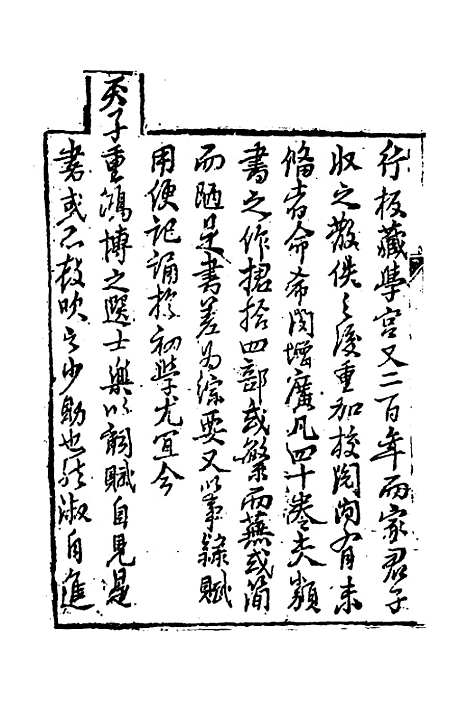 行板藏學宮又二百年而家君子
收之散佚之後重加校閱間有未
備者命希閔增廣凡四十卷夫類
書之作捃拾四部或繁而蕪或簡
而陋是書差為綜要又以事隸賦
用便記誦於初學尤宜今
天子重鴻博之選士樂以詞賦自見是
書或亦鼓吹之少助也然淑自進